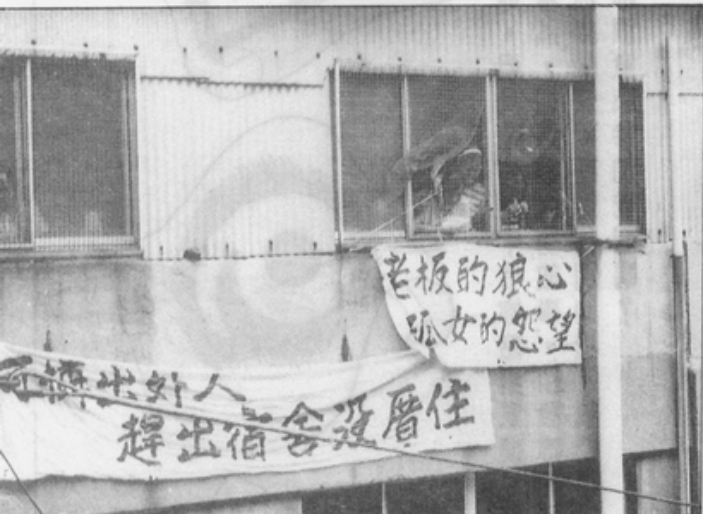 老板的狼心
孤女的怨望
可憐出外人
趕出宿舍沒厝住